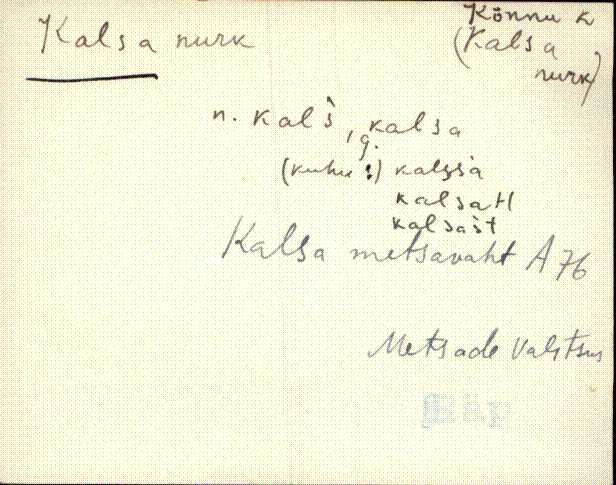 Kalsa nurk
Könnu k
(Kalsa
nurk)
n. kalš, g. kalsa
(kuhu:) kalssa
kalsaH
kalsast
Kalsa metsavaht A 76
Metsade Valitsus
Räp